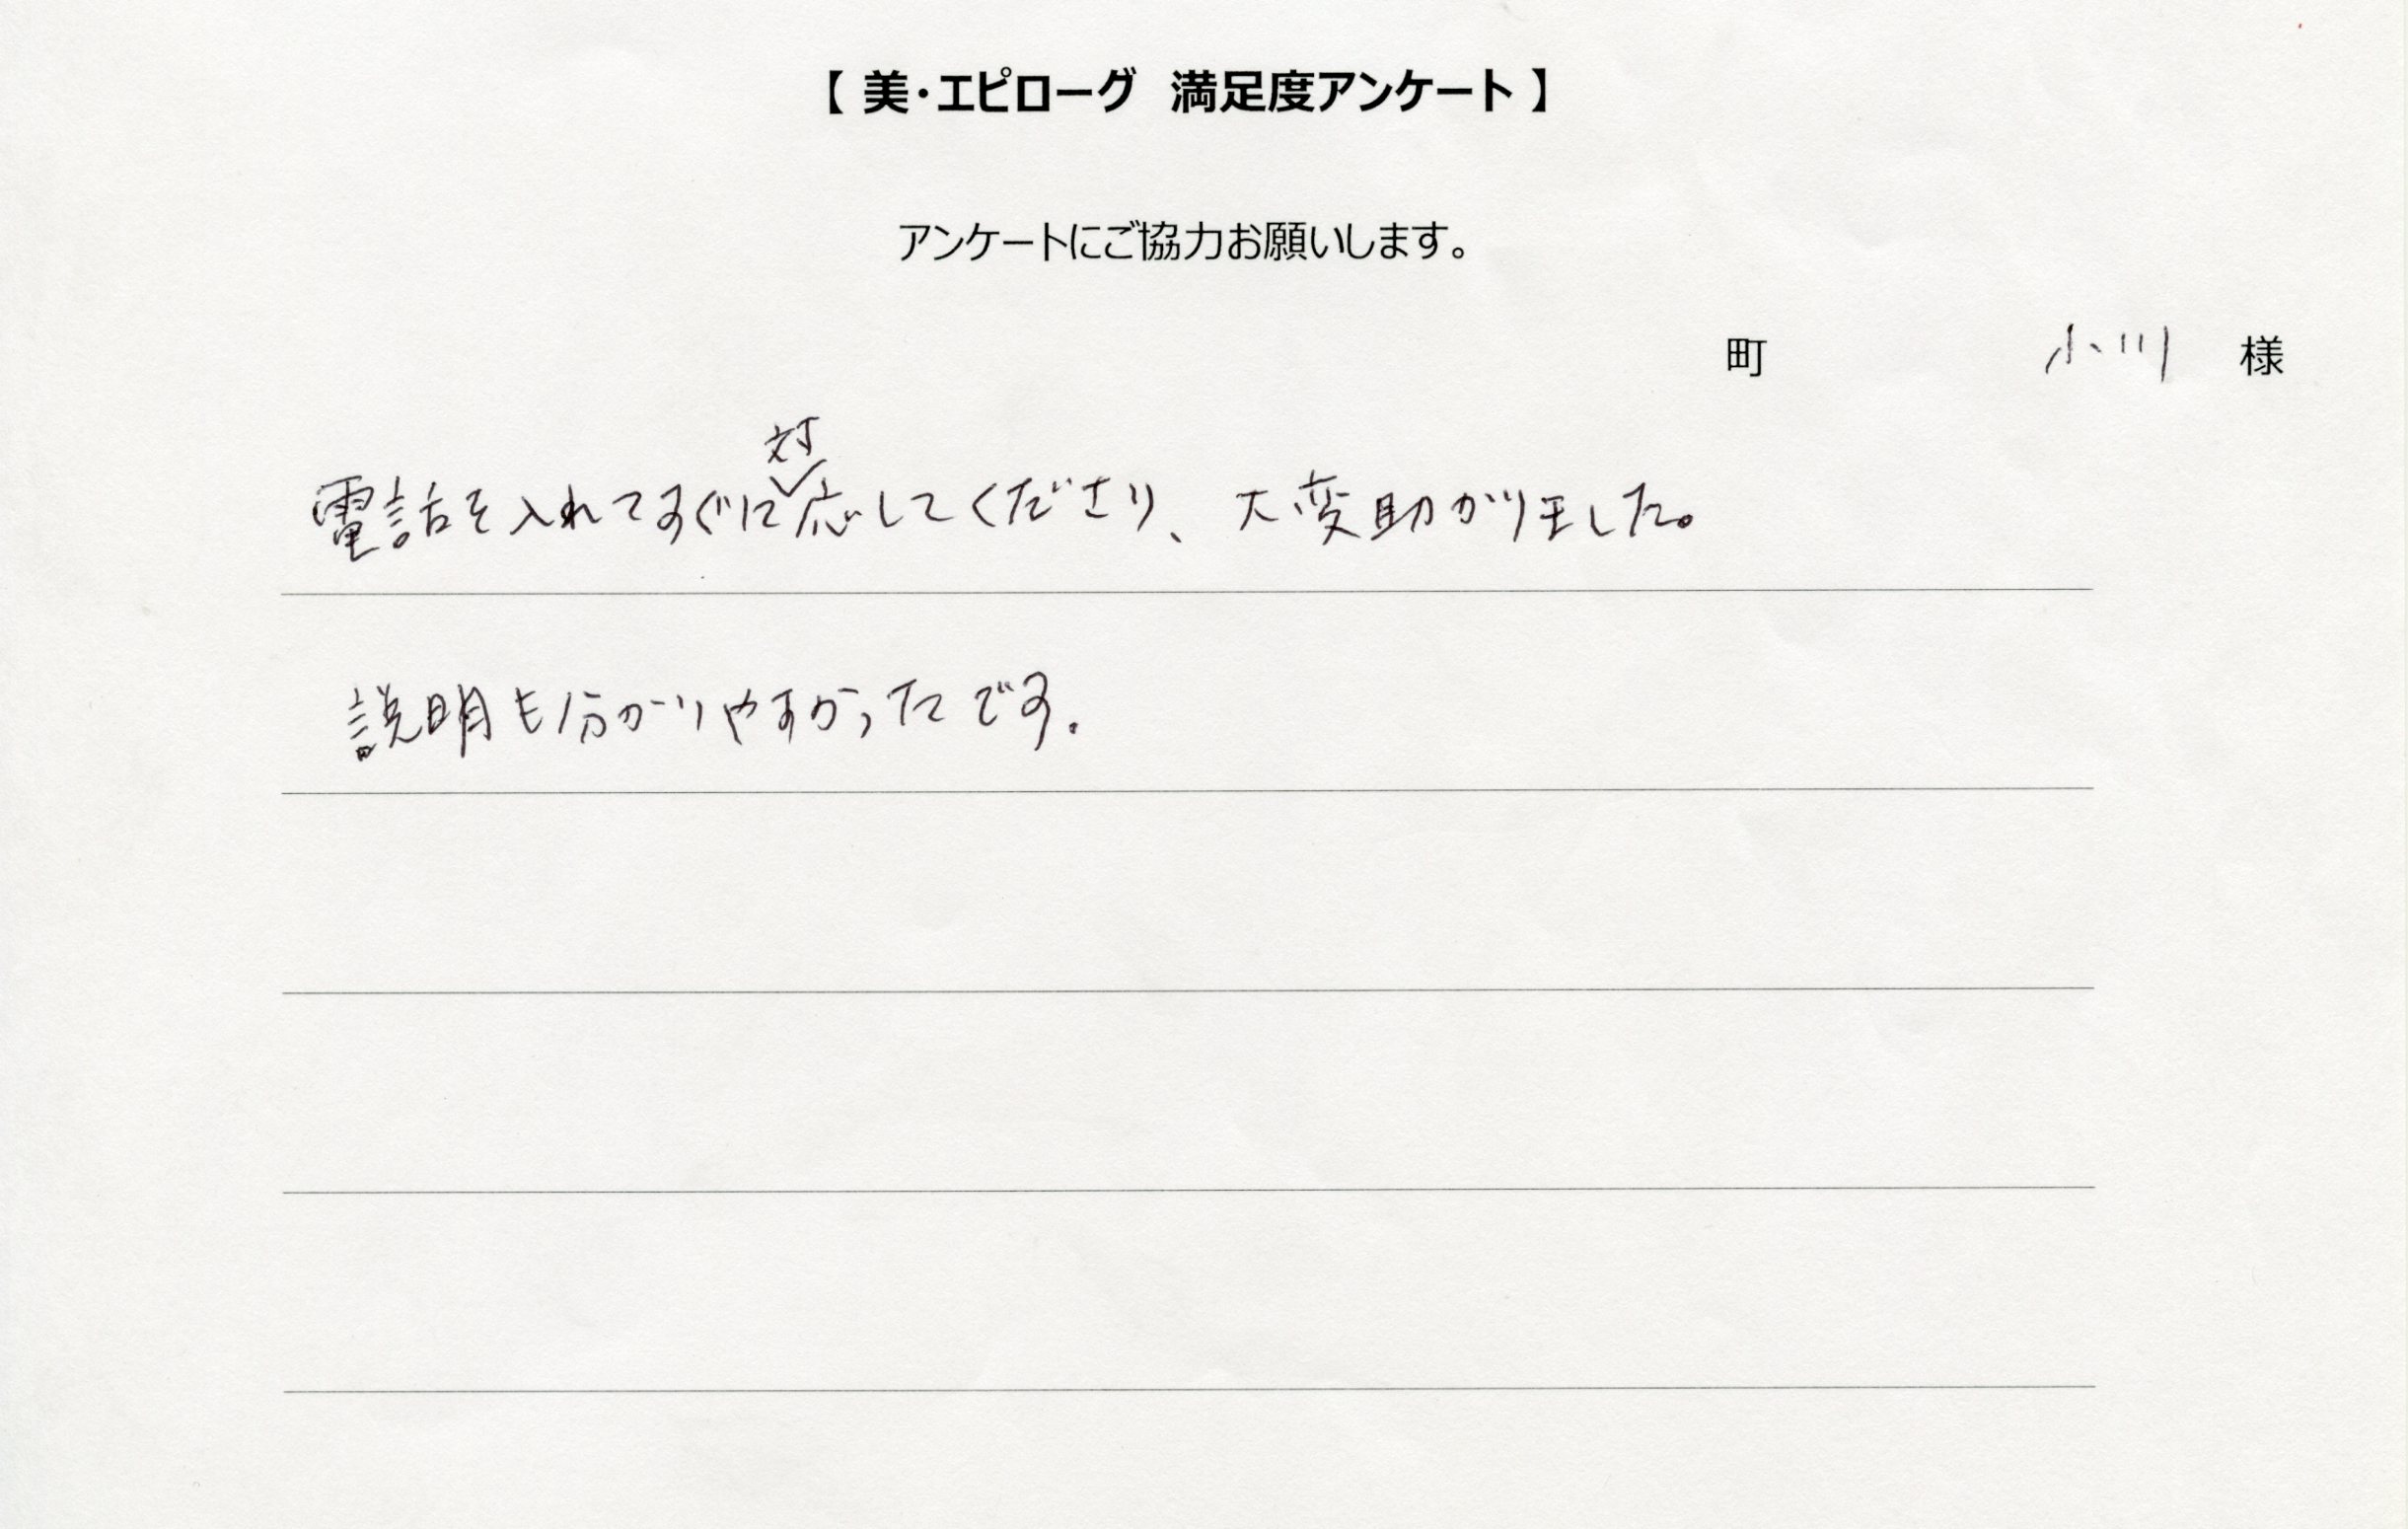 【 美・エピローグ 満足度アンケート 】
アンケートにご協力お願いします。
町 小川 様
電話を入れてすぐに対応してくださり、大変助かりました。
説明も分かりやすかったです。